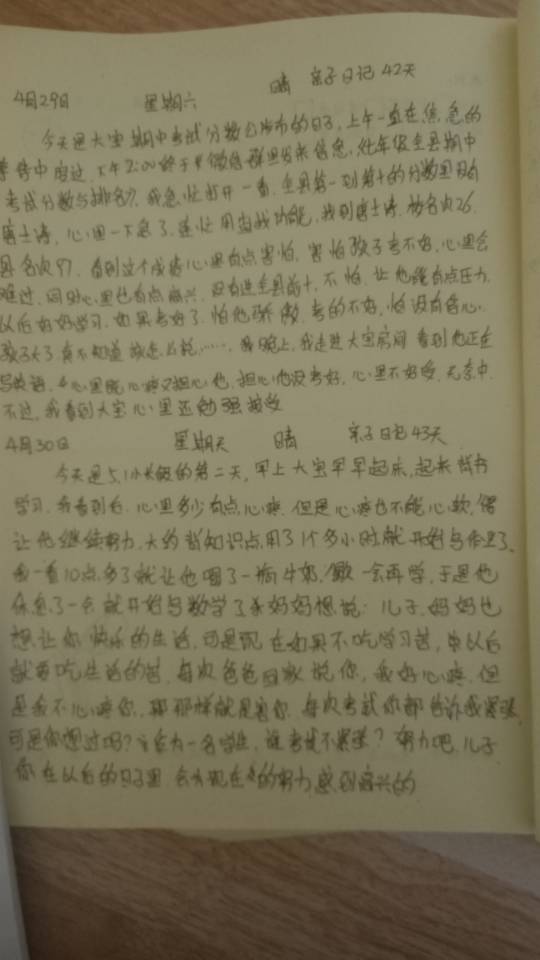 4月29日 星期六 晴 亲子日记42天
今天是大宝期中考试分数公布的日子,上午一直在焦急的
等待中度过,下午2:00终于微信群里发来信息,七年级全县期中
考试分数与排名,我急忙打开一看,全县第一到第十的分数里没有
心里一下急了,连忙用查找功能,找到博士涛,校名次26,
县名次97,看到这个成绩心里有点害怕,害怕孩子考不好,心里会
难过,同时心里也有点高兴,没有进全县前十,不怕,让他能有点压力
以后好好学习,如果考好了,怕他骄傲,考的不好,怕没有信心,
孩子大了真不知道该怎么说,……,晚上,我走进大宝房间看到他正在
写英语,心里既心疼又担心他,担心他没考好,心里不好受,
不过,我看到大宝心里还勉强接受
4月30日 星期天 晴 亲子日记43天
今天是5.1小长假的第二天,早上大宝早早起床,起来背书
学习,我看到后,心里多少有点心疼,但是心疼也不能心软,得
让他继续努力,大约背知识点用了1个多小时就开始写作业了,
我一看10点多了就让他喝了一瓶牛奶,歇一会再学,于是他
休息了一会就开始写数学了,妈妈想说:儿子,妈妈也
想让你快乐的生活,可是现在如果不吃学习苦,中以后
就要吃生活的苦,每次爸爸回家说你,我好心疼,但
是我不心疼你,那那样就是害你,每次考试你都告诉我紧张,
可是你想过吗?作为一名学生,谁考试不紧张?努力吧,儿子
你在以后的日子里 会为现在的努力感到高兴的